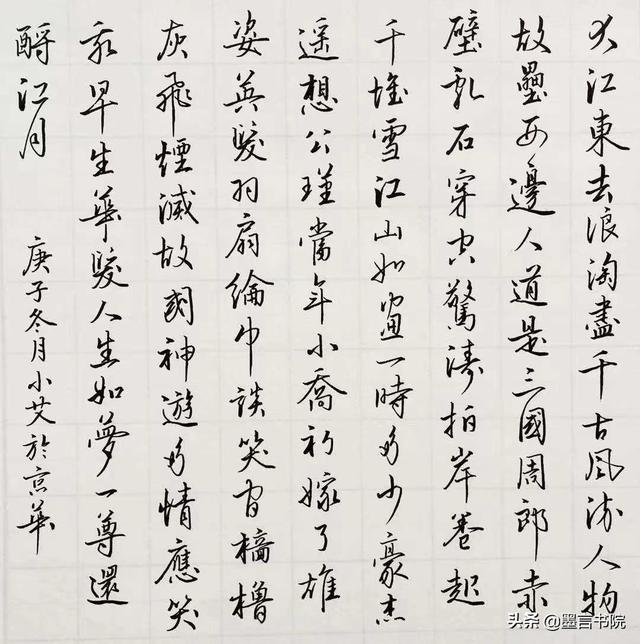 大江東去浪淘盡千古風流人物
故壘西邊人道是三國周郎赤
壁亂石穿空驚濤拍岸卷起
千堆雪江山如畫一時多少豪杰
遥想公瑾當年小喬初嫁了雄
姿英发羽扇綸巾談笑间檣櫓
灰飛煙滅故國神遊多情應笑
我早生華髮人生如夢一尊還
酹江月
庚子冬月小艾於京華
头条 @墨言书院